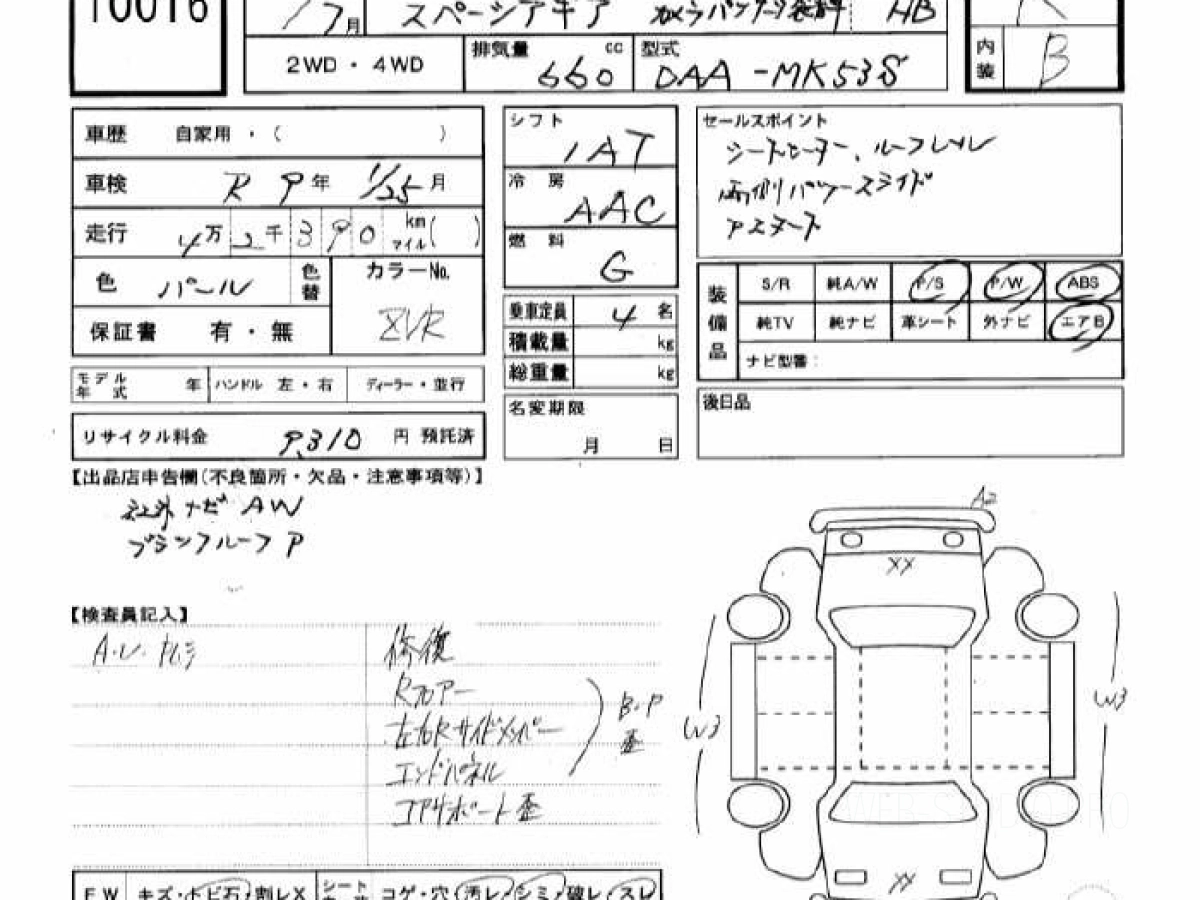 10016
7月 スペーシアギア カメラパッケージ装着車 HB R
2WD・4WD 排気量 cc 660 型式 DAA-MK53S 内装 B
車歴 自家用・( ) シフト IAT セールスポイント
シートヒーター、ルーフレール
車検 R 9年 1/25月 冷房 AAC 両側パワースライド
走行 4万2千390 km マイル( ) 燃料 G アスタート
色 パール 色替 カラーNo. ZVR
装備品 S/R 純A/W P/S P/W ABS
乗車定員 4 名 純TV 純ナビ 革シート 外ナビ エアB
保証書 有・無 積載量 kg
総重量 kg ナビ型番:
モデル年式 年 ハンドル 左・右 ディーラー・並行
名変期限 月 日 後日品
リサイクル料金 9,310 円 預託済
【出品店申告欄(不良箇所・欠品・注意事項等)】
社外ナビ AW
ブラックルーフP
A2
XX
【検査員記入】
修復
Rフロアー
左右Rサイドメンバー
エンドパネル
B・P歪
コアサポート歪
W3 W3
XX
FW キズ・トビ石・割レX シート コゲ・穴・汚レ・シミ・破レ・スレ